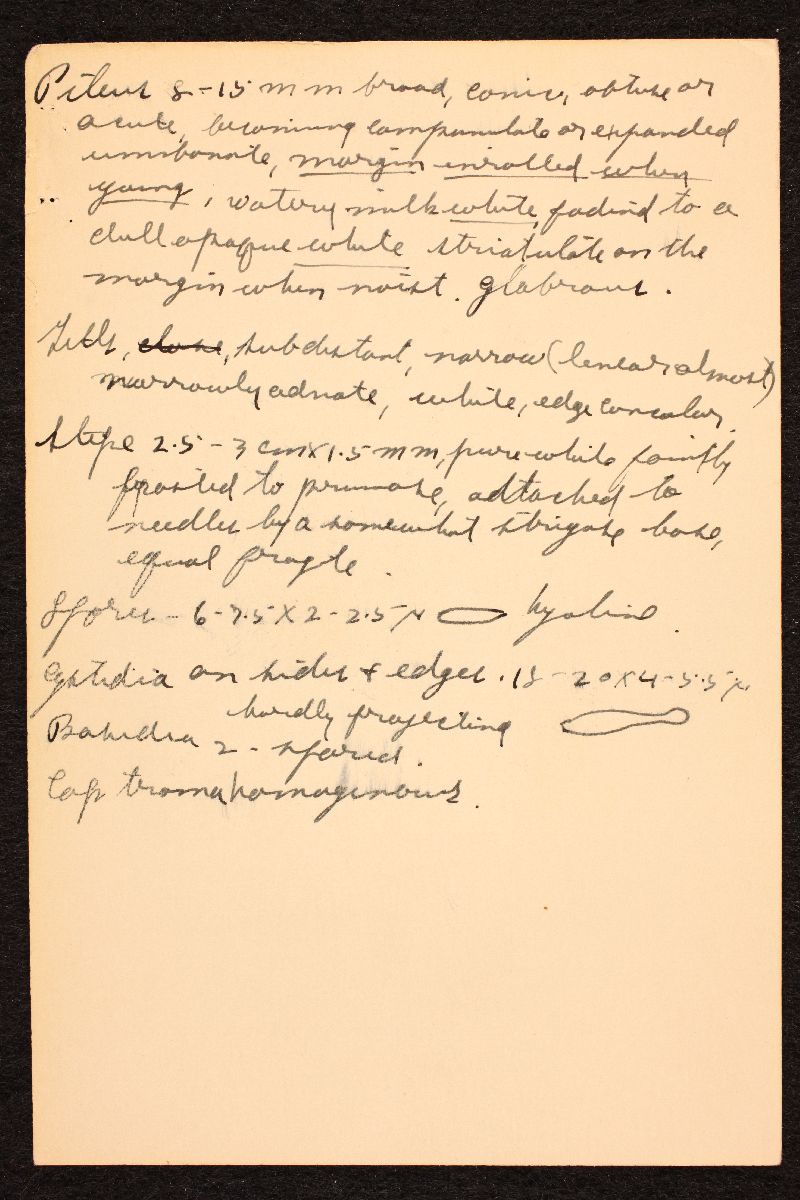 Pileus 8-15 mm broad, conic, obtuse or
acute, becoming campanulate or expanded
umbonate, margin inrolled when
young, watery milk white, fadind to a
dull opaque white striatulate on the
margin when moist. glabrous.
Gills, close, subdistant, narrow (linear almost)
narrowly adnate, white, edge concolor,
Stipe 2.5 - 3 cm x 1.5 mm, pure white faintly
frosted to pruinose, adtached to
needles by a somewhat strigose base,
equal fragile.
Spores - 6-7.5 X 2-2.5 μ hyaline.
cystidia on sides & edges. 18-20 x 4-5.5 μ
hardly projecting
Basidia 2-spored.
Cap trama homogenous.